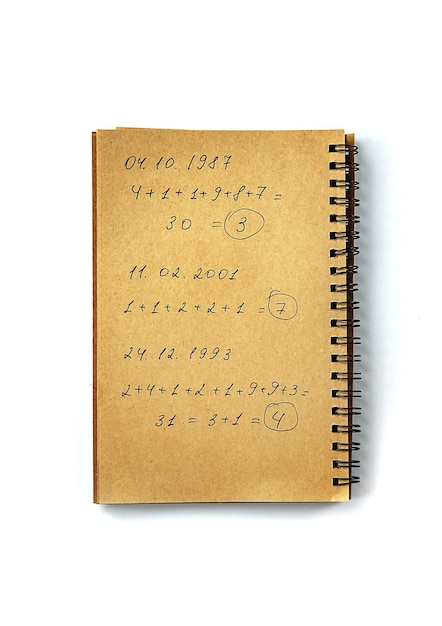 04.10.1987
4+1+1+9+8+7=
30 = 3
11.02.2001
1+1+2+2+1 = 7
24.12.1993
2+4+1+2+1+9+9+3=
31 = 3+1 = 4